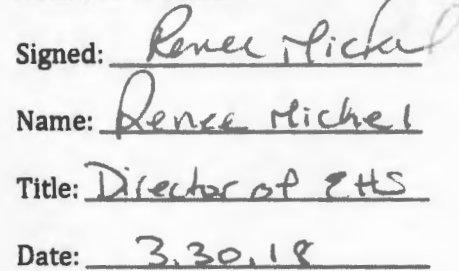 Signed: Renee Michel
Name: Renee Michel
Title: Director of EHS
Date: 3.30.18